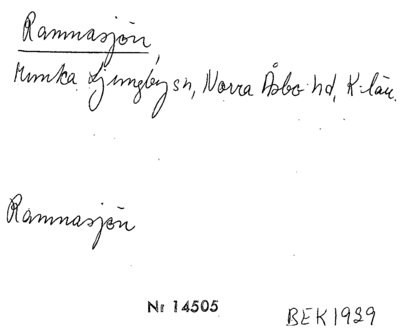 Ramnasjön,
Munka Ljungby sn, Norra Åsbo hd, K-län.
Ramnasjön
Nr 14505
BEK 1929